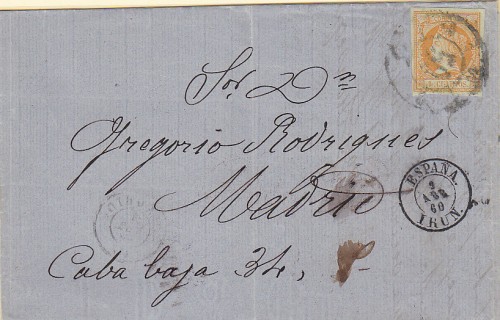 Sor. Dn
Gregorio Rodrigues
Madrid
Caba baja 34,
ESPAÑA.
ABR
60
IRUN.